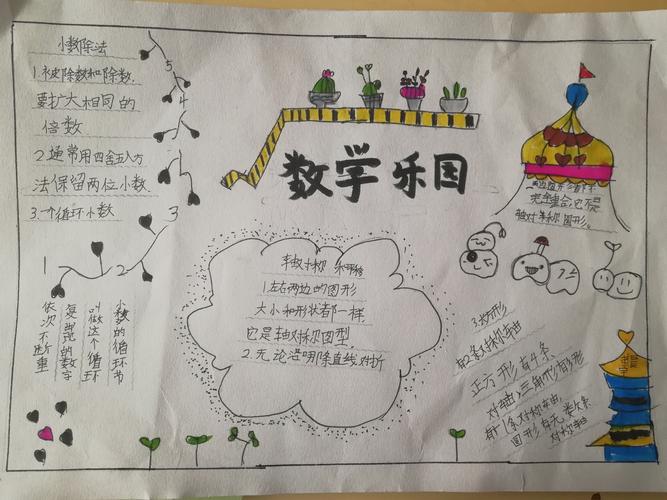 小数除法
1.被除数和除数
要扩大相同的
倍数
2.通常用四舍五入方
法保留两位小数
3.一个循环小数
5
4
3
2
1
小数的循环节
叫做这个循环
复出现的数字
依次不断重
数学乐园
轴对称和平移
1.左右两边的图形
大小和形状都一样
它是轴对称图型
2.无论沿哪除直线对折
两边图形
完全重合,它不是
轴对称图形。
有2条对称轴
正方形有4条
对轴,三角形
有1条对称轴,
圆形有无数条
对称轴